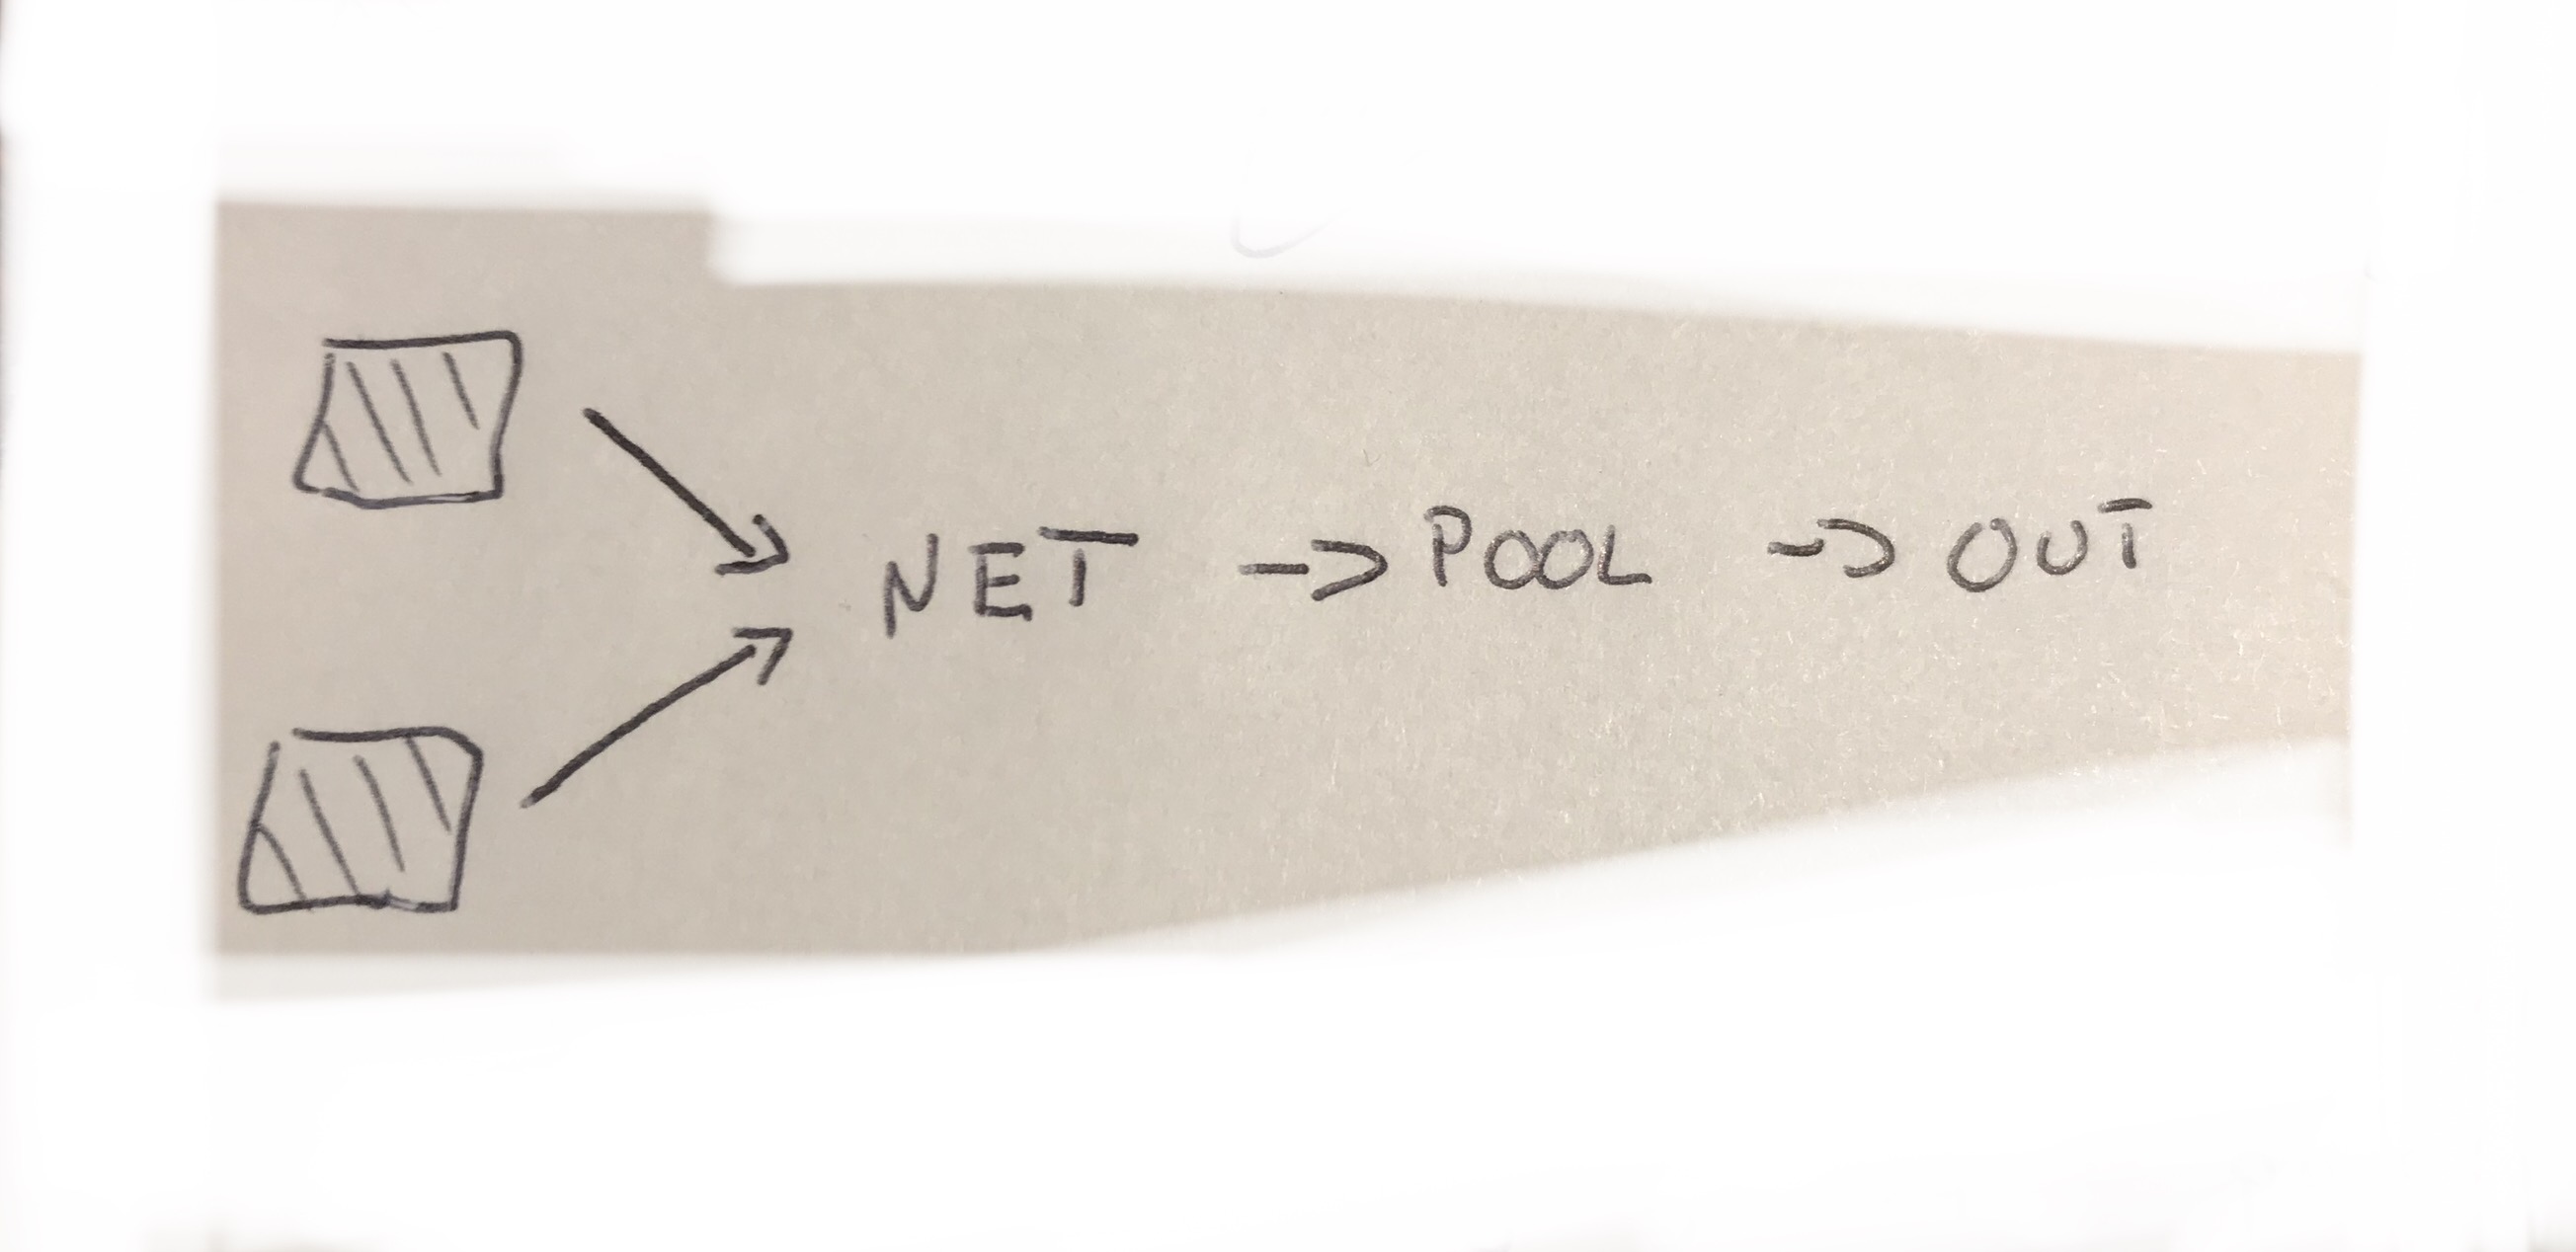 NET -> POOL -> OUT